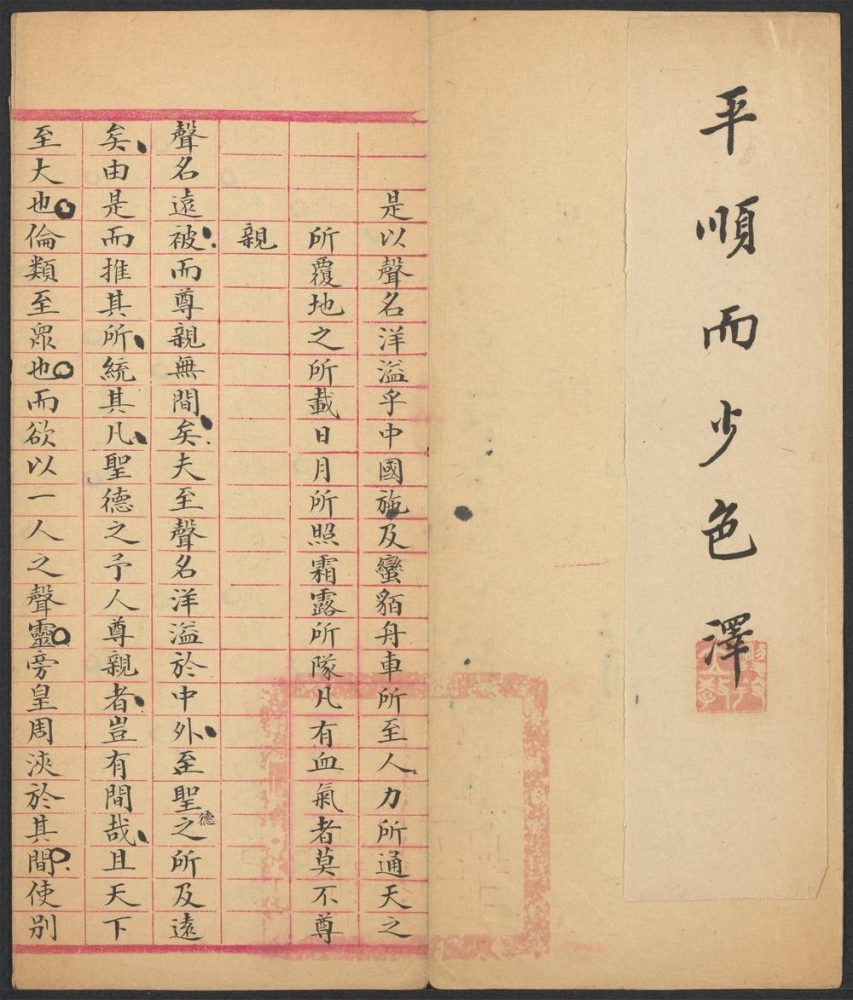 平順而少色澤
是以聲名洋溢乎中國施及蠻貊舟車所至人力所通天之
所覆地之所載日月所照霜露所隊凡有血氣者莫不尊
親
聲名遠被而尊親無間矣夫至聲名洋溢於中外至聖之德所及遠
矣由是而推其所統其凡聖德之予人尊親者豈有間哉且天下
至大也倫類至眾也而欲以一人之聲靈旁皇周浹於其間使別